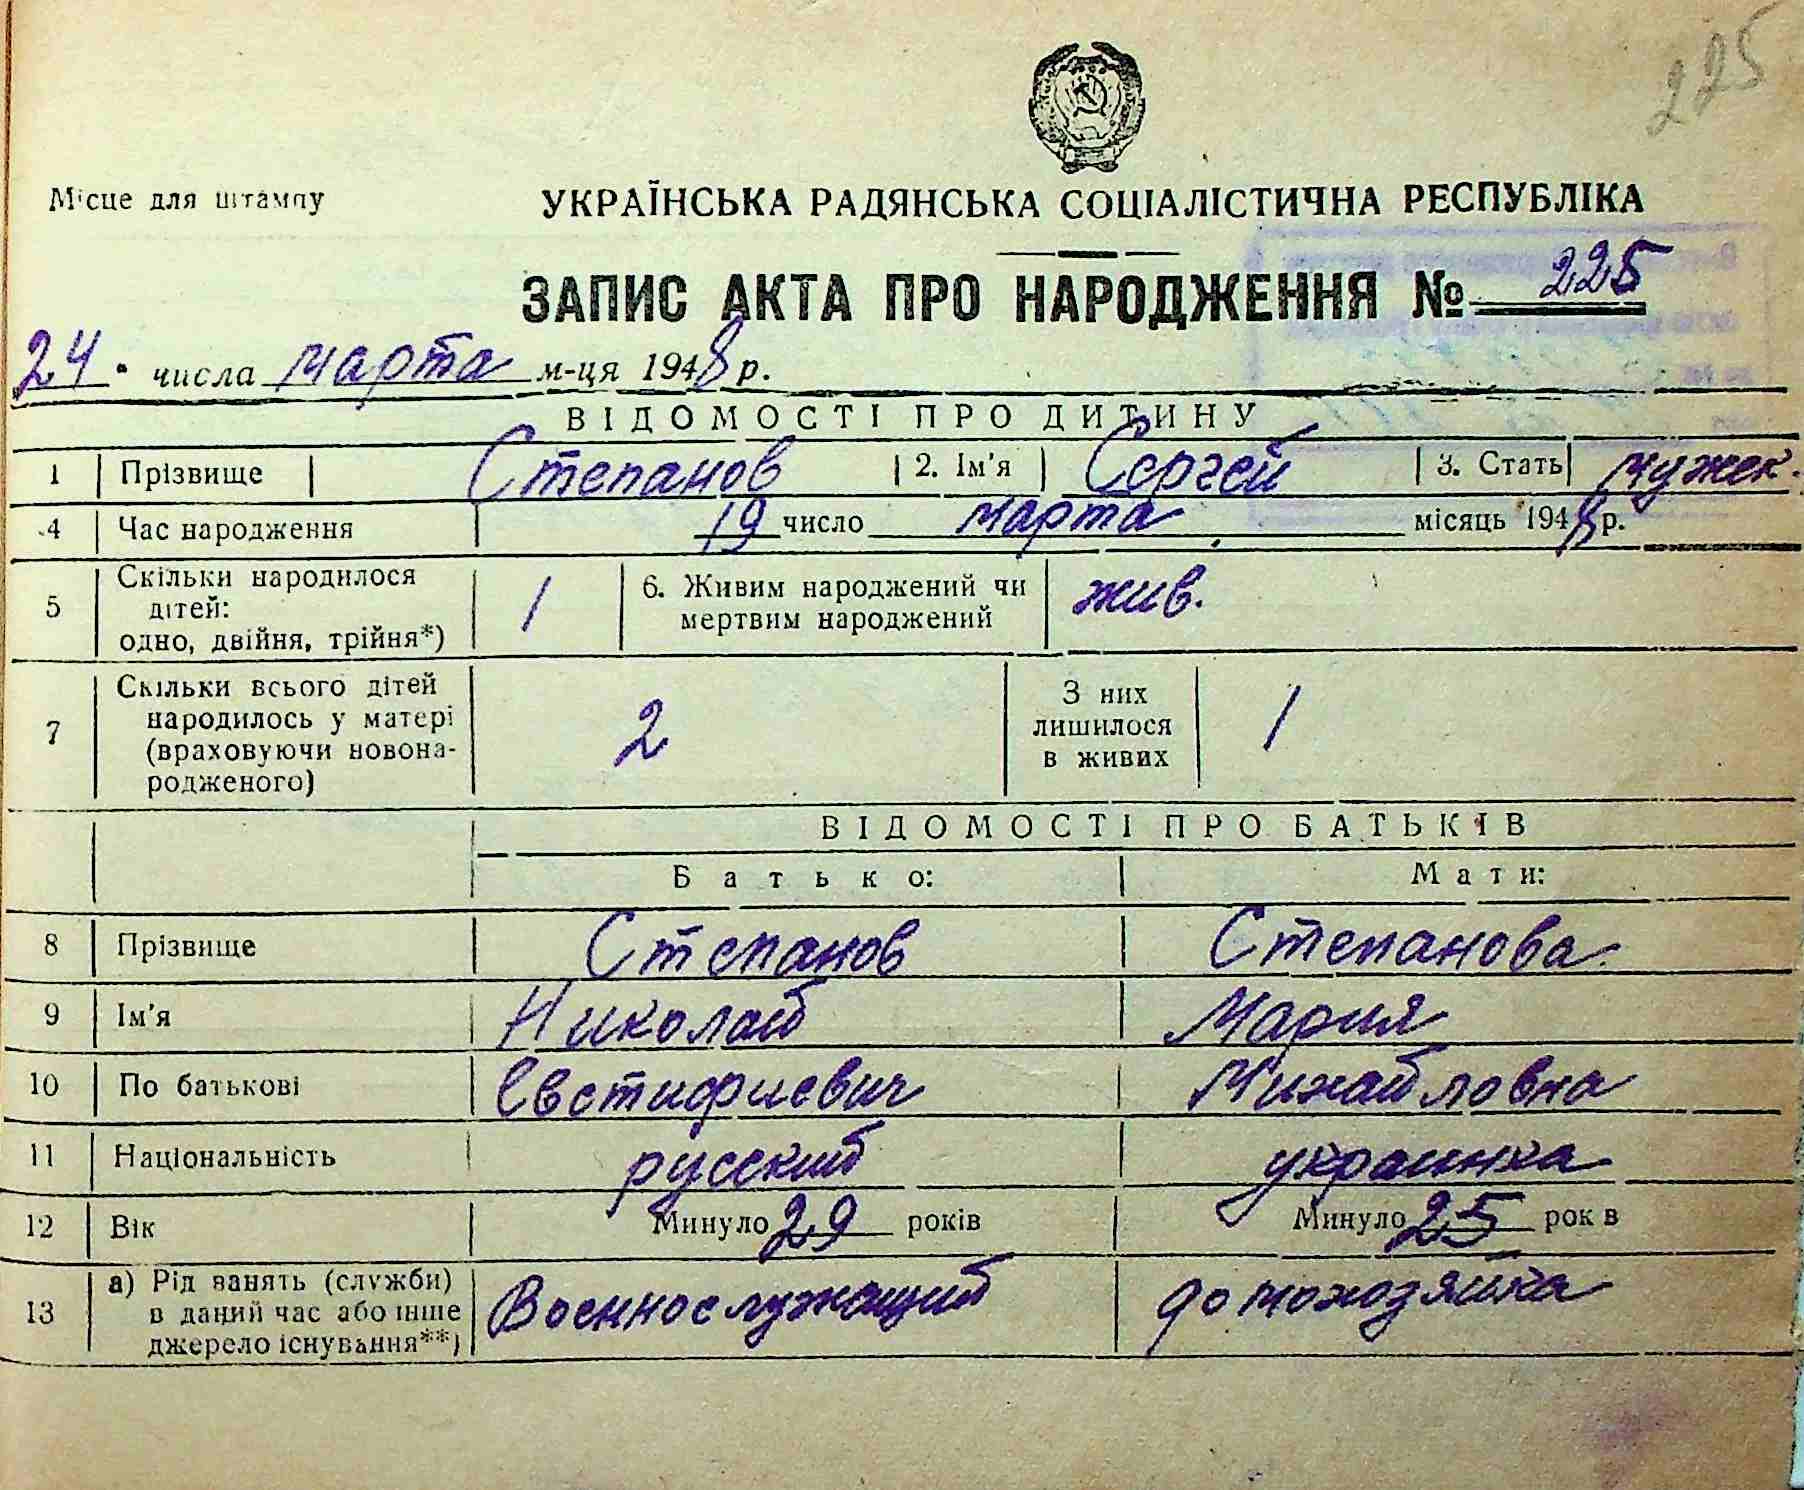 225
Місце для штампу
УКРАЇНСЬКА РАДЯНСЬКА СОЦІАЛІСТИЧНА РЕСПУБЛІКА
ЗАПИС АКТА ПРО НАРОДЖЕННЯ № 225
24. числа марта м-ця 1948 р.
ВІДОМОСТІ ПРО ДИТИНУ
1 Прізвище Степанов 2. Ім'я Сергей 3. Стать мужск.
4 Час народження 19 число марта місяць 1948 р.
5 Скільки народилося дітей: одно, двійня, трійня*) 1 6. Живим народжений чи мертвим народжений жив.
7 Скільки всього дітей народилось у матері (враховуючи новонародженого) 2 З них лишилося в живих 1
ВІДОМОСТІ ПРО БАТЬКІВ
Батько: Мати:
8 Прізвище Степанов Степанова.
9 Ім'я Николай Мария
10 По батькові Евстифиевич Михайловна
11 Національність русский украинка
12 Вік Минуло 29 років Минуло 25 рок в
13 а) Рід занять (служби) в даний час або інше джерело існування**) Военнослужащий домохозяйка